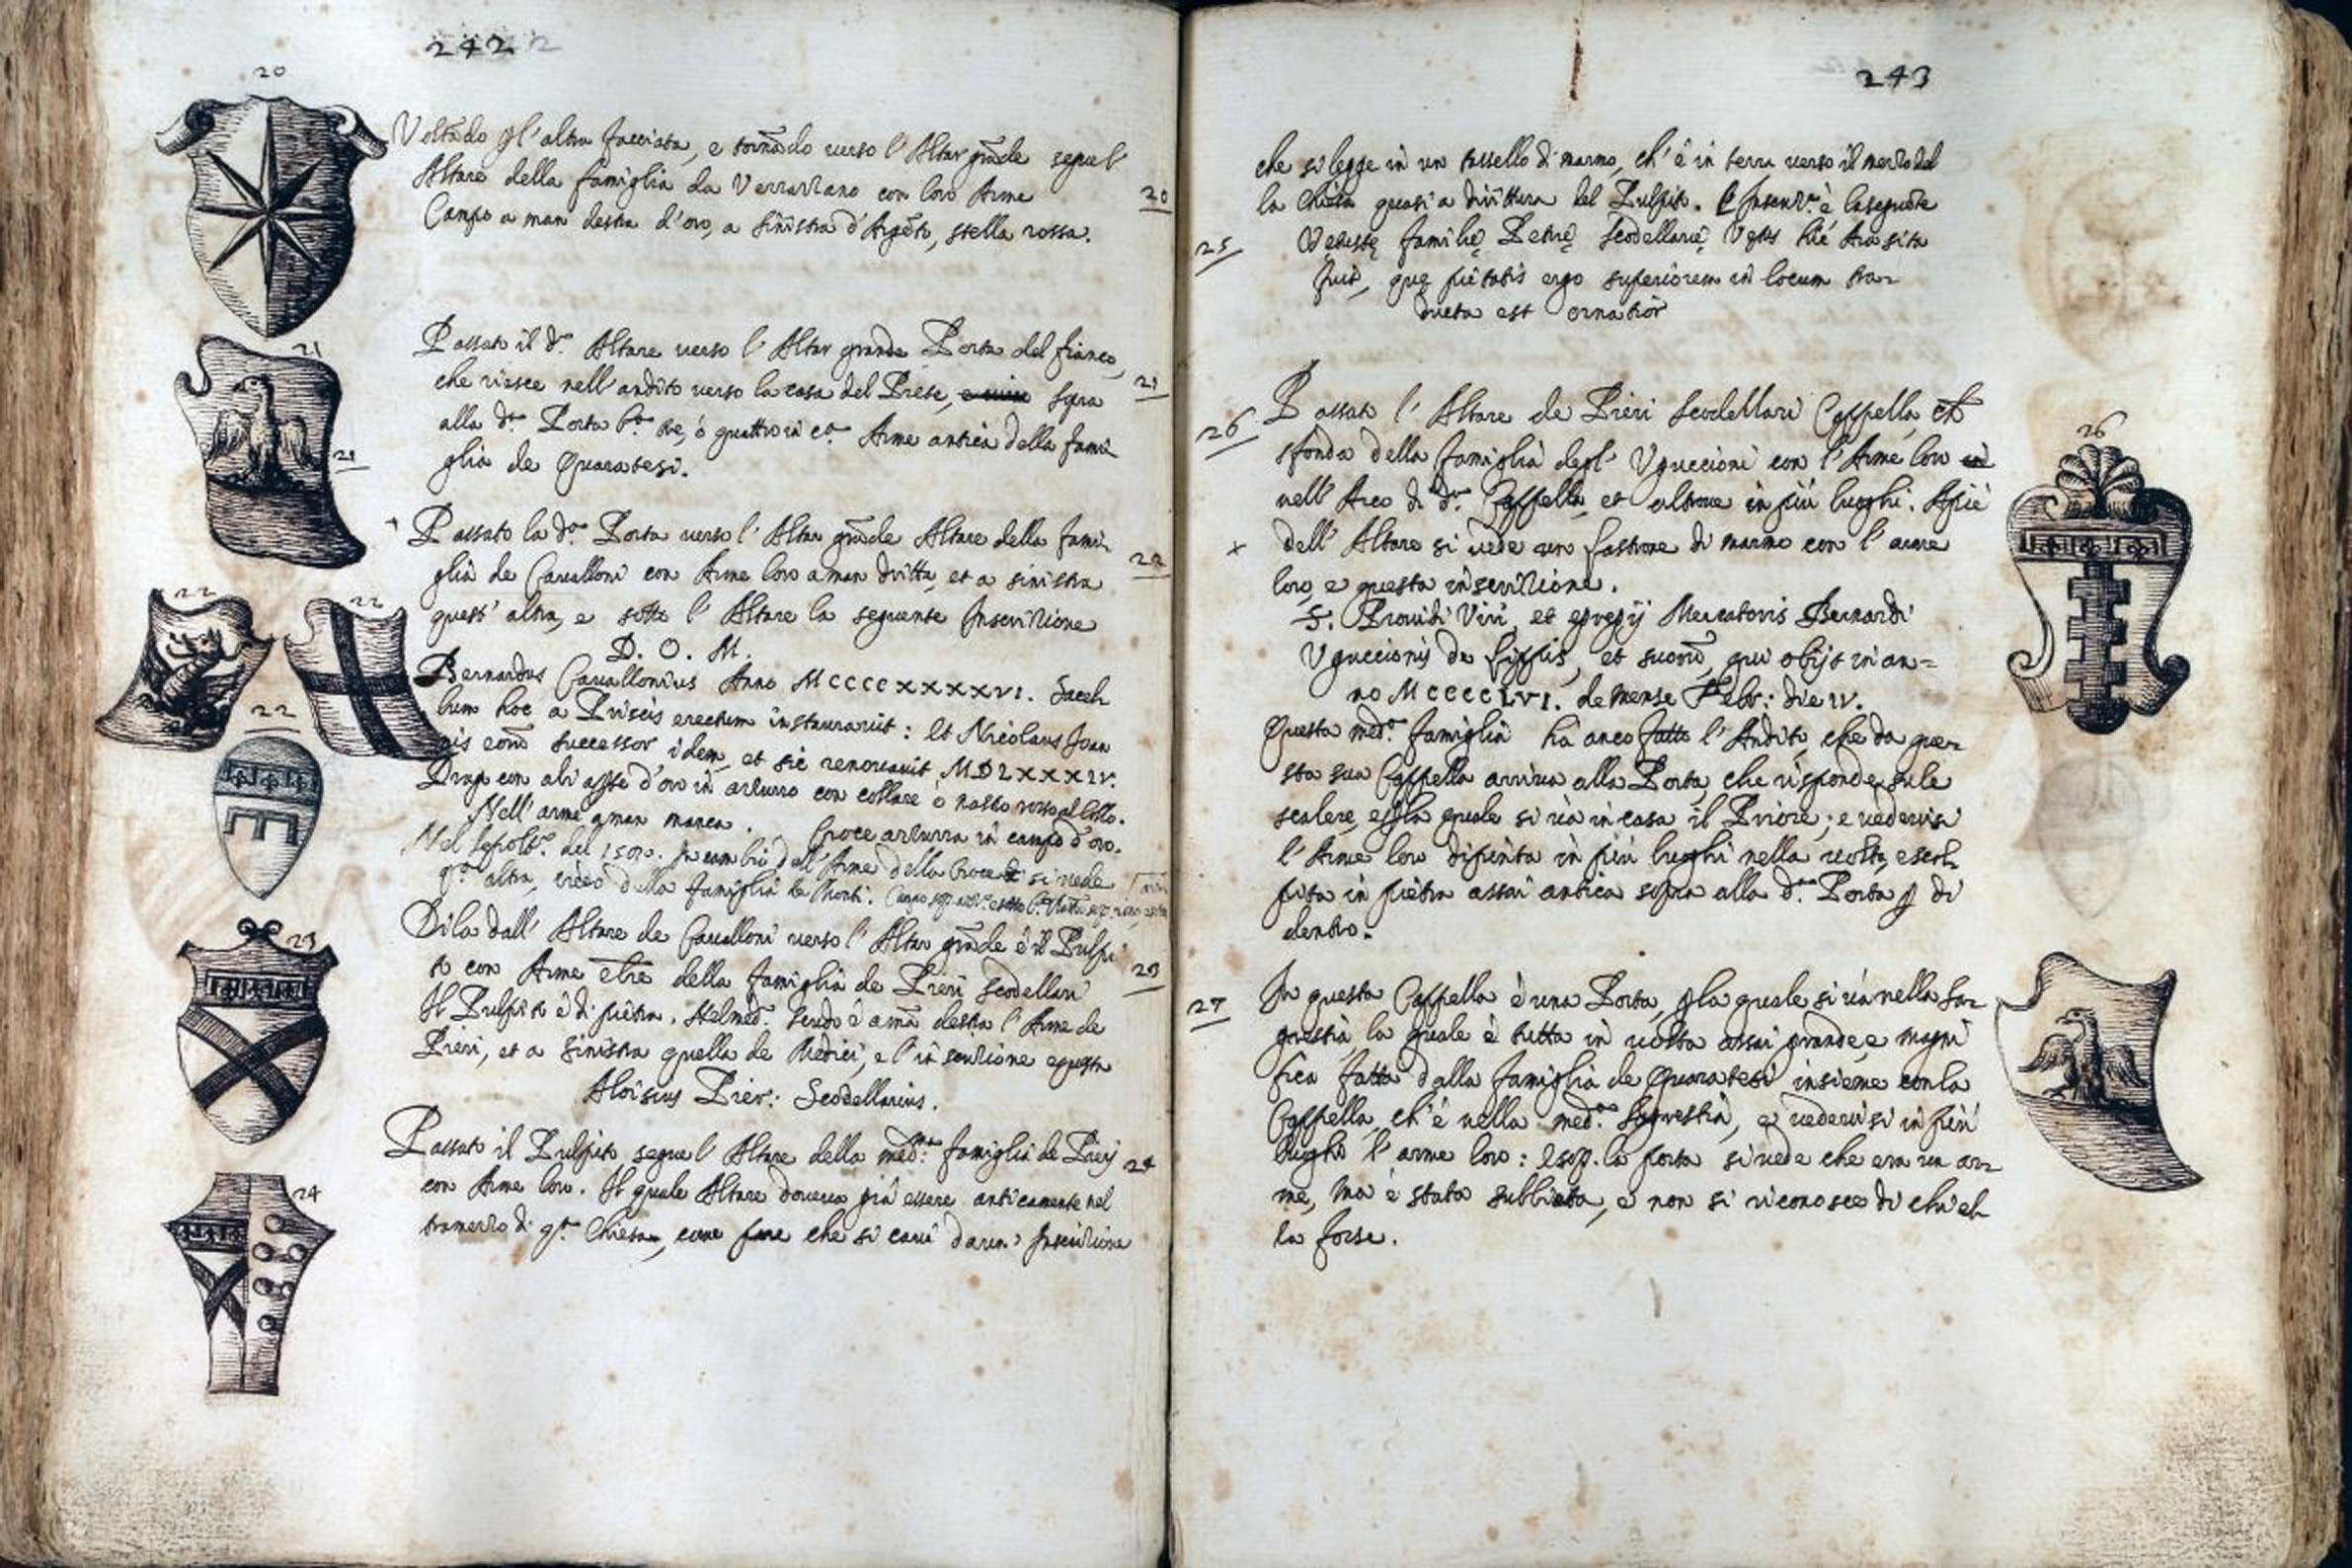 242
20
Voltādo p l'altra facciata, e tornādo verso l'Altar grāde segue l'
Altare della famiglia da Verrazzano con loro Arme
20
Campo a man destra d'oro, a sinistra d'Argēto, stella rossa.
21
Passato il dº. Altare verso l'Altar grande Porta del fianco,
che riesce nell'andito verso la casa del Prete, sopra
21
alla dª. Porta tre, ò quattro Arme antica della fami
glia de Quaratesi.
21
Passato la dª. Porta verso l'Altar grāde Altare della fami
glia de Cavalloni con Arme loro a man dritta, et a sinistra
22
quest'altra, e sotto l'Altare la seguente Inscrizione
22
22
D. O. M.
Bernardus Cavallonius Anno MCCCCXXXXVI. Sacel
lum hoc a Priscis erectum instauravit: Et Nicolaus Joan
22
nis successor idem, et sic renovavit MDLXXXIV.
Drago con ali d'oro in azzurro con collare ò nastro al collo.
Nell'arme a man manca. Croce azzurra in campo d'oro.
Nel del In cambio dell'Arme della Croce si vede
altra, cioè della famiglia
Di la dall'Altare de Cavalloni verso l'Altar grāde è il Pulpi
23
to con Arme della famiglia de Pieri Scodellari
23
Il Pulpito è di pietra. Nel medº. Scudo è a mā destra l'Arme de
Pieri, et a sinistra quella de Medici, e l'inscrizione è questa
Aloisius Pier: Scodellarius.
Passato il Pulpito segue l'Altare della medª. famiglia de Pieri
24
con Arme loro. Il quale Altare doveva già essere anticamente nel
24
tramezzo di qª. Chiesa, come pare che si cavi da un' Inscrizione
243
che si legge in un tassello di marmo, ch'è in terra verso il mezzo del
la Chiesa quasi a dirittura del Pulpito. è la seguēte
25
Vetustę familię Petrę Scodellarię hic
fuit, quę pietatis ergo superiorem in locum tra-
ducta est ornatior
26
Passato l'Altare de Pieri Scodellari Cappella ch
26
sfonda della famiglia degl'Uguccioni con l'Arme loro
nell'Arco di dª. Cappella, et altrove in più luoghi. Apiè
dell'Altare si vede un lastrone di marmo con l'arme
loro, e questa inscrizione.
S. Providi Viri, et egregij Mercatoris Bernardi
Uguccionis de Lippis, et suorū, qui obijt in an=
no MCCCCLVI. de mense Febr: die IV.
Questa medª. famiglia hà anco fatto l'Andito, che da que-
sta sua Cappella arriva alla Porta, che risponde su le
scalere, p la quale si và in casa il Priore; e vedevisi
l'Arme loro dipinta in più luoghi nella volta, e scol
pita in pietra assai antica sopra alla dª. Porta p di
dentro.
27
In questa Cappella è una Porta, p la quale si và nella Sa-
grestia la quale è tutta in volta assai grande, e magni
fica fatta dalla famiglia de Quaratesi insieme con la
Cappella, ch'è nella medª. Sagrestia, e vedevisi in più
luoghi l'arme loro: sop. la porta si vede che era un ar-
me, ma è stata subbiata, e non si riconosce di chi el
la fosse.